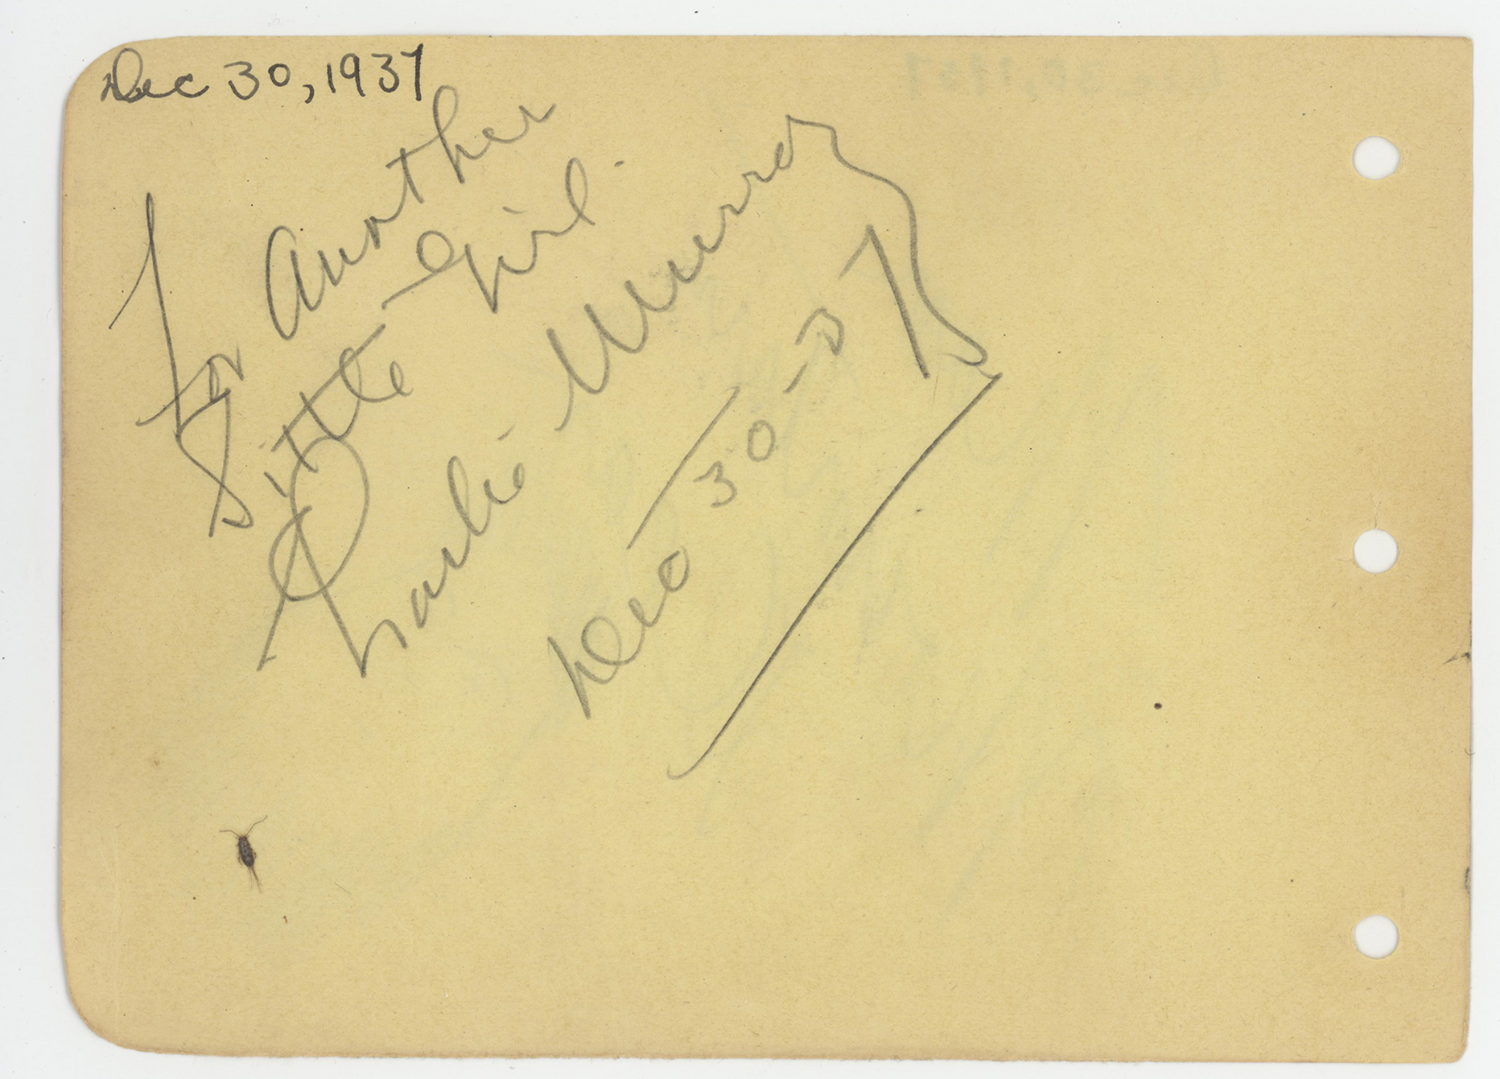 Dec 30, 1937
For Another
Little Girl.
Charlie Murray
Dec 30-37